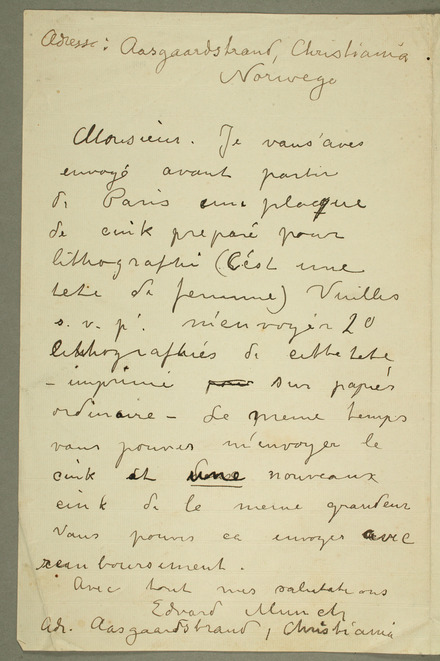 Adresse: Aasgaardstrand, Christiania
Norwege
Monsieur. Je vous aves
envoyé avant partir
di Paris une plaque
de cink preparé pour
lithographi (C'ést une
tete de femme) Vuilles
s. v. p. m'envoyér 20
lithographiés de cette tete
– imprimé sur papiés
ordinaire – Le meme temps
vous pouves m'envoyer le
cink et une nouveaux
cink de le meme grandeur
Vous pouves ca envoyer avec
reimboursement.
Avec tout mes salutations
Edvard Munch
Adr. Aasgaardstrand, Christiania